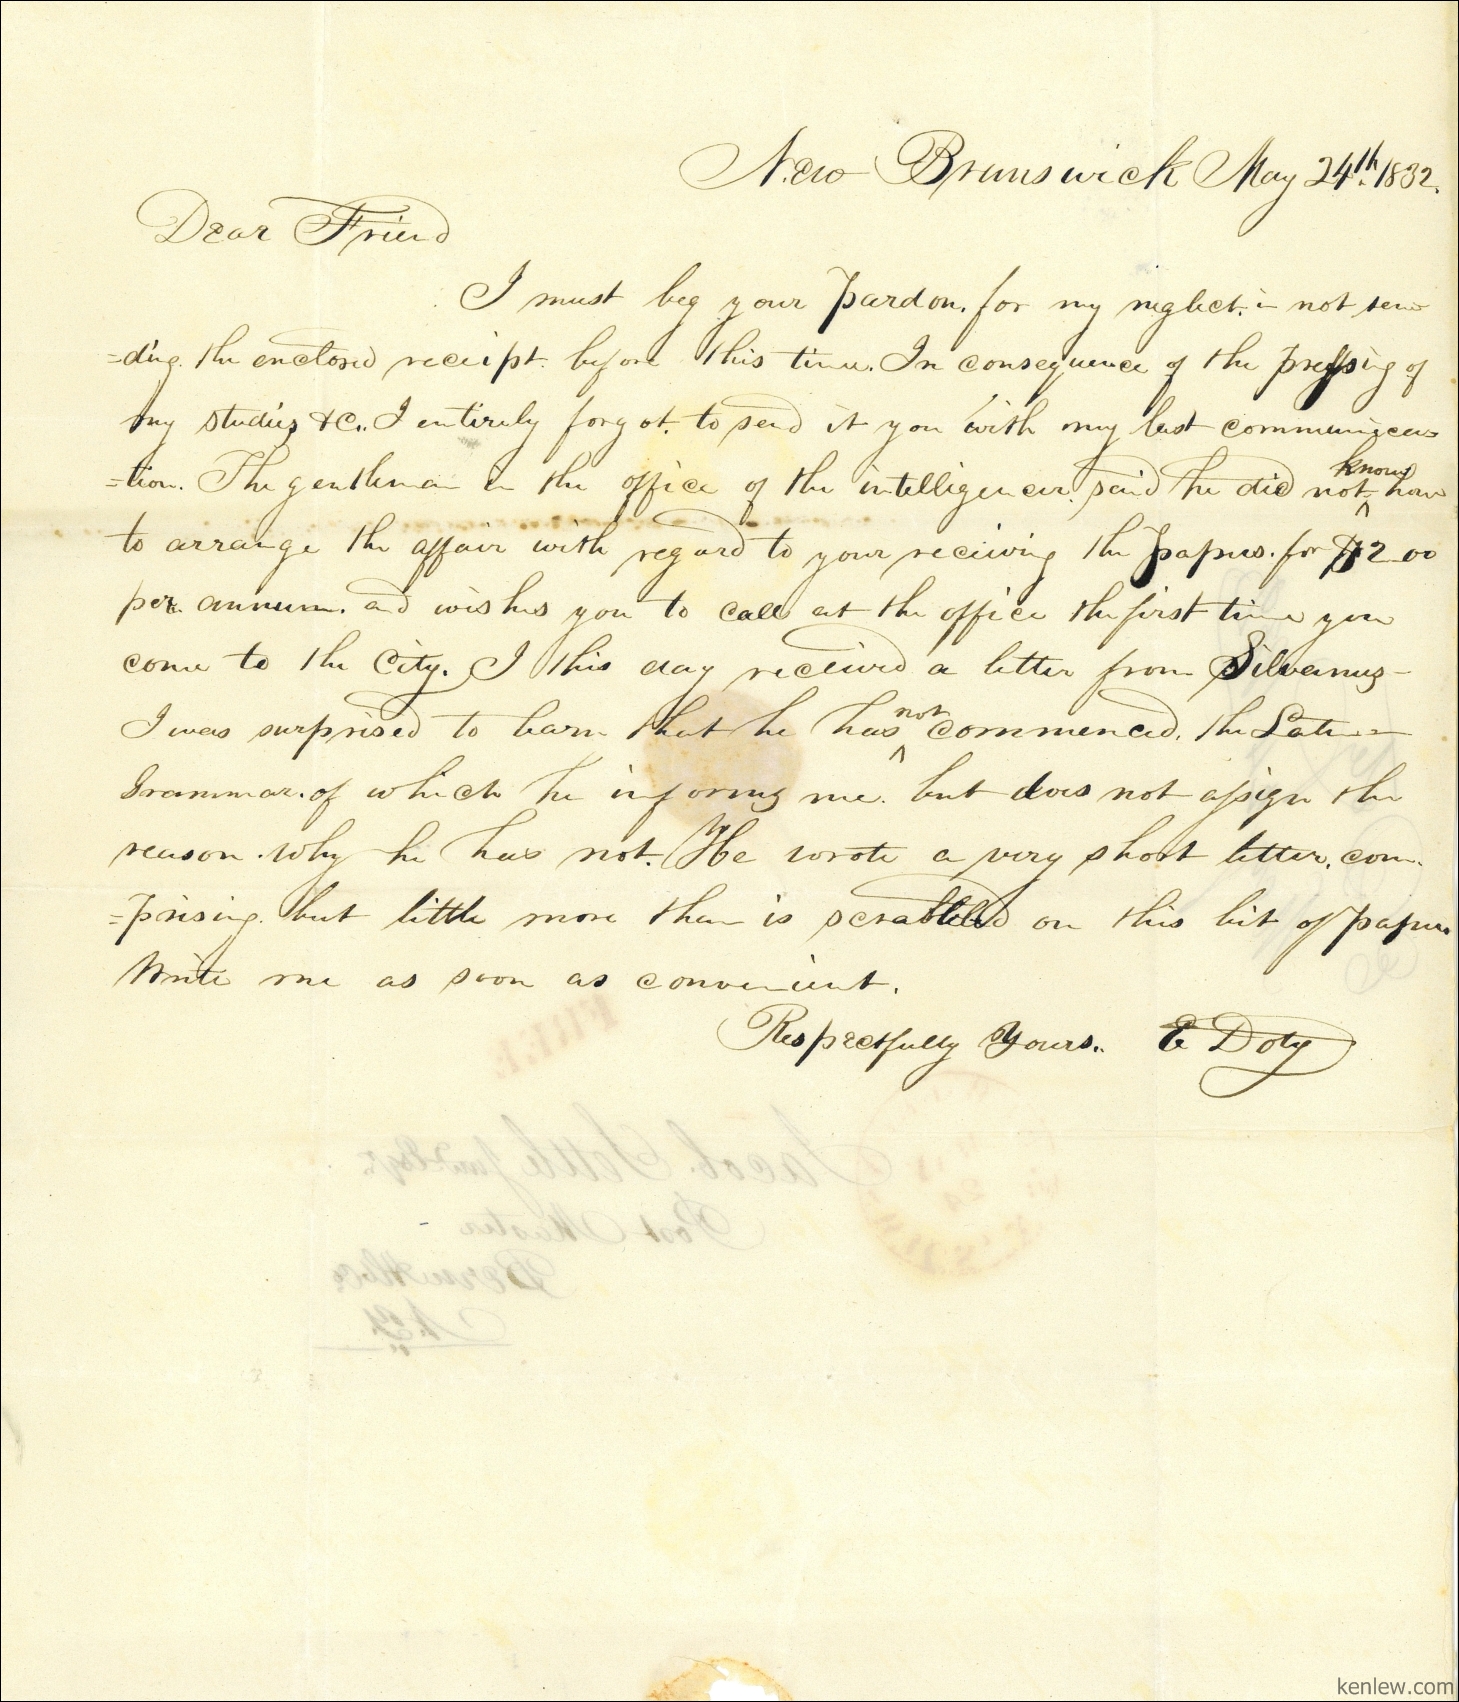 New Brunswick May 24th. 1832.
Dear Friend
I must beg your pardon. for my neglect. in not sen
=ding. the enclosed receipt. before this time. In consequence of the pressing of
my studies &C.. I entirely forgot. to send it you with my last communica=
=tion. The gentleman in the office of the intelligencer. said he did not ^know how
to arrange the affair with regard to your receiving the papers. for $2.00
per. annum. and wishes you to call at the office the first time you
come to the City. I this day received a letter from Silvanus-
I was surprised to learn that he has ^not commenced. the Latin
Grammar. of which he informs me. but does not assign the
reason. why he has not. He wrote a very short letter. com.
=prising. but little more than is scrabbled on this bit of paper
Write me as soon as convenient.
Respectfully Yours.. E Doty
FREE
Jacob. Settle Junr. Esqr.
Post Master
Berne Alb. Co.
N.Y.
kenlew.com